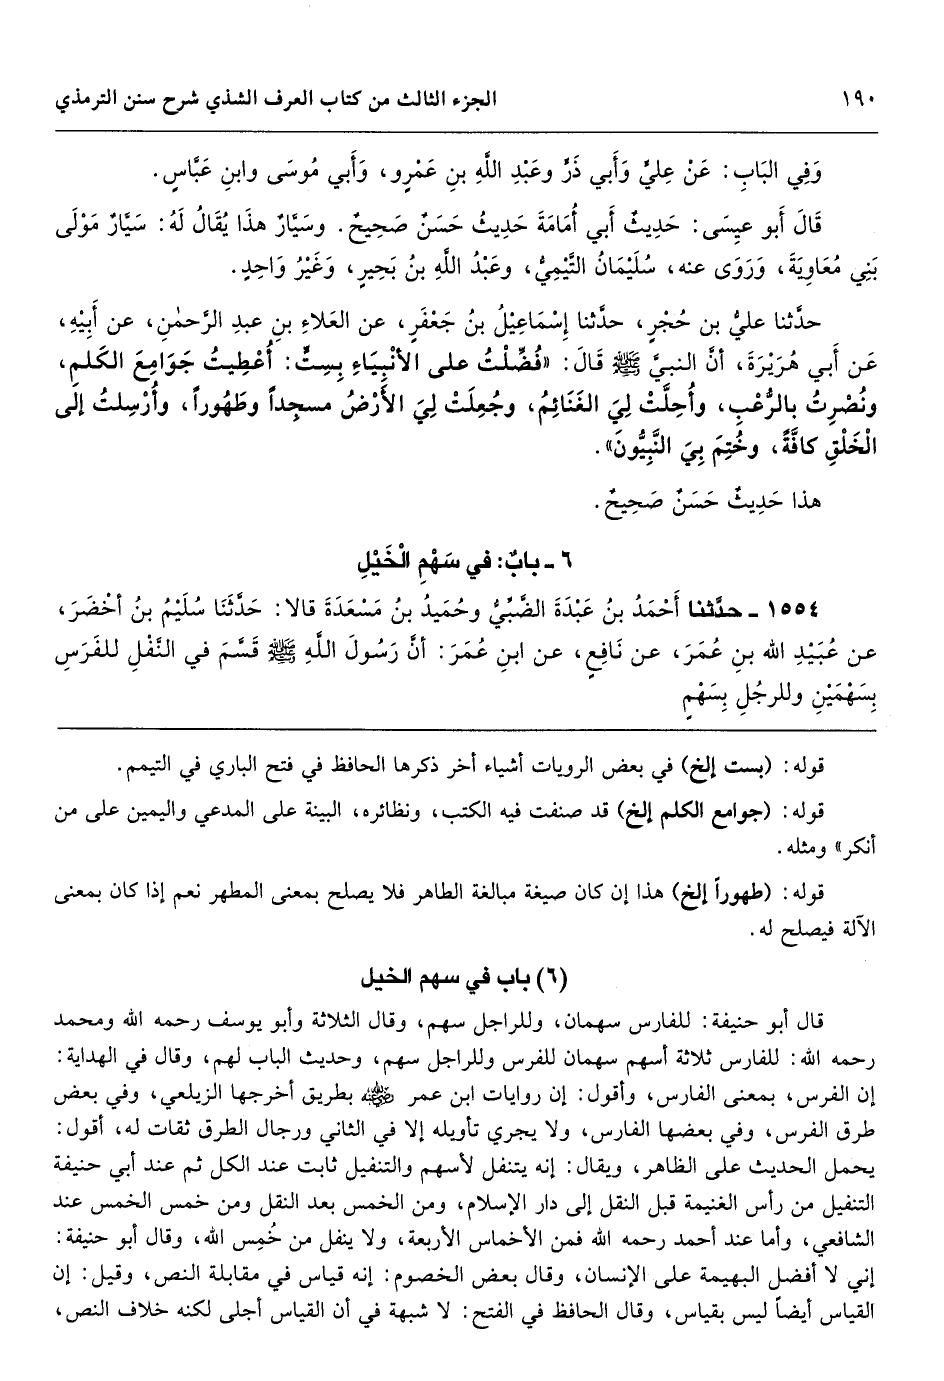 ١٩٠ الجزء الثالث من كتاب العرف الشذي شرح سنن الترمذي
وَفِي البَابِ: عَنْ عَلِيٍّ وَأَبي ذَرٍّ وعَبْدِ اللَّهِ بنِ عَمْرٍو، وَأَبي مُوسَى وابنِ عَبَّاسٍ.
قَالَ أَبو عيِسَى: حَدِيثُ أَبي أُمَامَةَ حَدِيثُ حَسَنٌ صَحِيحٌ. وسَيَّارٌ هذَا يُقَالُ لَهُ: سَيَّارٌ مَوْلَى
بَنِي مُعَاوِيَةَ، وَرَوَى عنه، سُلَيْمَانُ التَّيْمِيُّ، وعَبْدُ اللَّهِ بنُ بَحيرٍ، وَغَيْرُ وَاحِدٍ.
حدَّثنا عليُّ بن حُجْرٍ، حدَّثنا إِسْمَاعِيْلُ بنُ جَعْفَرٍ، عن العَلاءِ بنِ عبدِ الرَّحمٰنِ، عن أَبِيْهِ،
عَن أَبي هُرَيْرَةَ، أنَّ النبيَّ ﷺ قَالَ: «فُضِّلْتُ على الأنْبِيَاءِ بِسِتٍّ: أُعْطِيتُ جَوَامِعَ الكَلمِ،
ونُصْرِتُ بالرُّعْبِ، وأُحِلَّتْ لِيَ الغَنَائِمُ، وجُعِلَتْ لِيَ الأرْضُ مسجِداً وطَهُوراً، وأُرْسِلتُ إلَى
الْخَلْقِ كافَّةً، وخُتِمَ بِيَ النَّبِيُّونَ».
هذا حَدِيثٌ حَسَنٌ صَحِيحٌ.
٦ ـ بابٌ: في سَهْمِ الْخَيْلِ
١٥٥٤ ـ حدَّثنا أَحْمَدُ بنُ عَبْدَةَ الضَّبِّيُّ وحُمَيدُ بنُ مَسْعَدَةَ قالا: حَدَّثَنَا سُلَيْمُ بنُ أخْضَرَ،
عن عُبَيْدِ الله بنِ عُمَرَ، عن نَافِعٍ، عن ابنِ عُمَرَ: أنَّ رَسُولَ اللَّهِ ﷺ قَسَّمَ في النَّفْلِ للفَرَسِ
بِسَهْمَيْنِ وللرجُلِ بِسَهْمٍ
قوله: (بست إلخ) في بعض الرويات أشياء أخر ذكرها الحافظ في فتح الباري في التيمم.
قوله: (جوامع الكلم إلخ) قد صنفت فيه الكتب، ونظائره، البينة على المدعي واليمين على من
أنكر» ومثله.
قوله: (طهوراً إلخ) هذا إن كان صيغة مبالغة الطاهر فلا يصلح بمعنى المطهر نعم إذا كان بمعنى
الآلة فيصلح له.
(٦) باب في سهم الخيل
قال أبو حنيفة: للفارس سهمان، وللراجل سهم، وقال الثلاثة وأبو يوسف رحمه الله ومحمد
رحمه الله: للفارس ثلاثة أسهم سهمان للفرس وللراجل سهم، وحديث الباب لهم، وقال في الهداية:
إن الفرس، بمعنى الفارس، وأقول: إن روايات ابن عمر رضي الله عنه بطريق أخرجها الزيلعي، وفي بعض
طرق الفرس، وفي بعضها الفارس، ولا يجري تأويله إلا في الثاني ورجال الطرق ثقات له، أقول:
يحمل الحديث على الظاهر، ويقال: إنه يتنفل لأسهم والتنفيل ثابت عند الكل ثم عند أبي حنيفة
التنفيل من رأس الغنيمة قبل النقل إلى دار الإسلام، ومن الخمس بعد النقل ومن خمس الخمس عند
الشافعي، وأما عند أحمد رحمه الله فمن الأخماس الأربعة، ولا ينفل من خُمِس الله، وقال أبو حنيفة:
إني لا أفضل البهيمة على الإنسان، وقال بعض الخصوم: إنه قياس في مقابلة النص، وقيل: إن
القياس أيضاً ليس بقياس، وقال الحافظ في الفتح: لا شبهة في أن القياس أجلى لكنه خلاف النص،